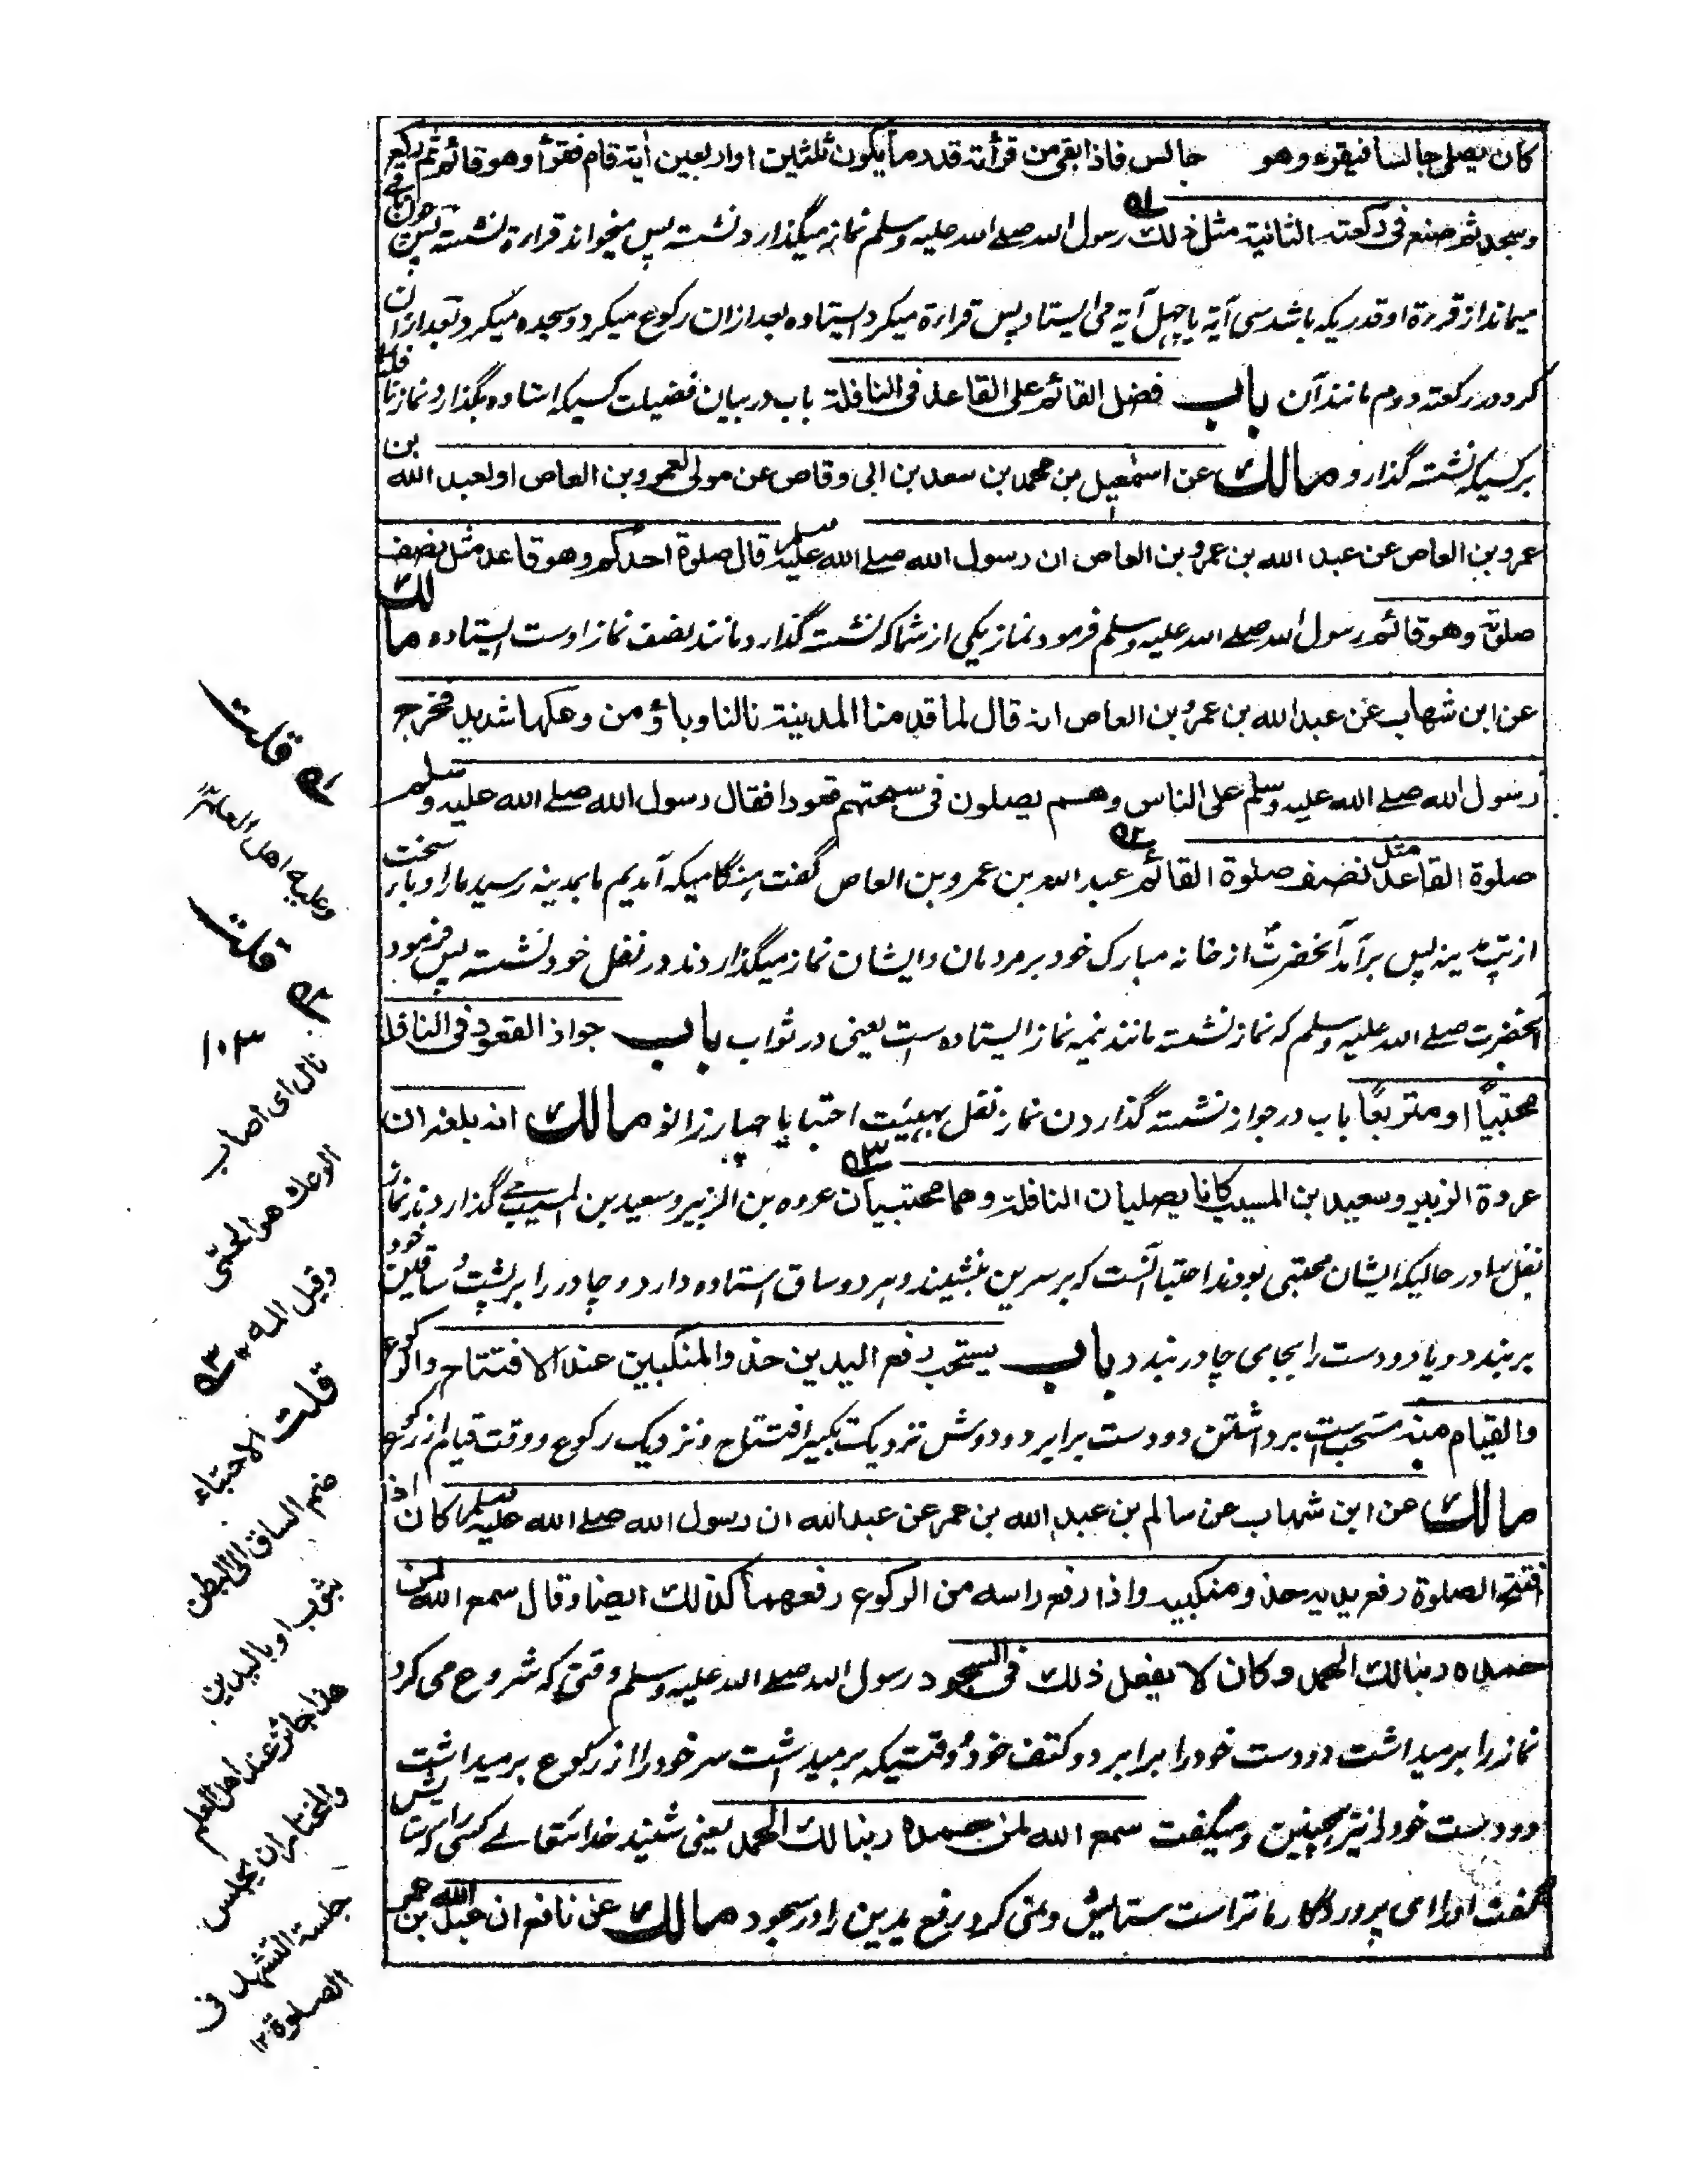 كان يصلى جالسا فيقرء وهو جالس فاذا بقى من قرأته قدر ما يكون ثلثين او اربعين أية قام فقرأ وهو قائم ثم ركع
وسجد ثم صنع فى ركعته الثانية مثل ذلك رسول الله صلے الله عليه وسلم نماز ميگذارد نشسته پس ميخواند قراءة نشسته پس چون باقے
ميماند از قراءة او قدريكه باشد سى آية يا چهل آية مى ايستاد پس قراءة ميكرد ايستاده بعد ازان ركوع ميكرد و سجده ميكرد بعد ازان
كرد در ركعته دوم مانند آن باب فضل القائم على القاعد فى النافلة باب در بيان فضيلت كسيكه استاده بگذارد نماز نافله
بر كسيكه نشسته گذارد مالك عن اسمعيل بن محمد بن سعد بن ابى وقاص عن مولى لعمرو بن العاص او لعبد الله بن
عمرو بن العاص عن عبد الله بن عمرو بن العاص ان رسول الله صلے الله عليه وسلم قال صلوة احدكم وهو قاعد مثل نصف
صلوته وهو قائم رسول الله صلے الله عليه وسلم فرمود نماز يكى از شما كه نشسته گذارد مانند نصف نماز اوست ايستاده مالك
عن ابن شهاب عن عبد الله بن عمرو بن العاص انه قال لما قدمنا المدينة نالنا وباؤ من وعكها شديد فخرج
رسول الله صلے الله عليه وسلم على الناس وهم يصلون فى سبحتهم قعودا فقال رسول الله صلے الله عليه وسلم
صلوة القاعد مثل نصف صلوة القائم عبد الله بن عمرو بن العاص گفت هنگاميكه آمديم ما بمدينه رسيد ما را وباء سخت
از تپ مدينه پس برآمد آنحضرت از خانه مبارك خود بر مردمان و ايشان نماز ميگذاردند در نفل خود نشسته پس فرمود
آنحضرت صلے الله عليه وسلم كه نماز نشسته مانند نيمه نماز ايستاده است يعنى در ثواب باب جواز القعود فى النافلة
محتبياً او متربعاً باب در جواز نشسته گذاردن نماز نفل بهيئت احتبا يا چهار زانو مالك انه بلغه ان
عروة الزبير وسعيد بن المسيب كانا يصليان النافلة وهما محتبيان عروه بن الزبير وسعيد بن المسيب مے گذاردند نماز
نفل را در حاليكه ايشان محتبى بودند احتبا آنست كه بر سرين بنشيند و هر دو ساق استاده دارد و چادر را بر پشت و ساقين خود
بر بندد و يا دو دست را بجاى چادر بندد باب يستحب رفع اليدين حذو المنكبين عند الافتتاح والركوع
والقيام منه مستحب ست برداشتن دو دست برابر دو دوش نزديك تكبير افتتاح و نزديك ركوع و وقت قيام از ركوع
مالك عن ابن شهاب عن سالم بن عبد الله بن عمر عن عبد الله ان رسول الله صلے الله عليه وسلم كان اذا
افتتح الصلوة رفع يديه حذو منكبيه واذا رفع راسه من الركوع رفعهما كذلك ايضا وقال سمع الله لمن
حمده ربنا لك الحمد وكان لا يفعل ذلك فى السجود رسول الله صلے الله عليه وسلم وقتى كه شروع مى كرد
نماز را برميداشت دو دست خود را برابر دو كتف خود و وقتيكه برميداشت سر خود را از ركوع برميداشت
دو دست خود را نيز همچنين و ميگفت سمع الله لمن حمده ربنا لك الحمد يعنى شنيد خدايتعالے كسى را كه ستايش
گفت او را اى پروردگار ما تراست ستايش و نمى كرد رفع يدين را در سجود مالك عن نافع ان عبد الله بن عمر
۵۱ قلت
وعليه اهل العلم
۵۲ قلت
نال اى اصاب
الوعك هو الحمى
وقيل المه
۵۳
قلت الاحتباء
ضم الساق الى البطن
بثوب او باليدين
هذا جائز عند اهل العلم
والمختار ان يجلس
جلسة التشهد فى
الصلوة ۱۲
۱۰۳